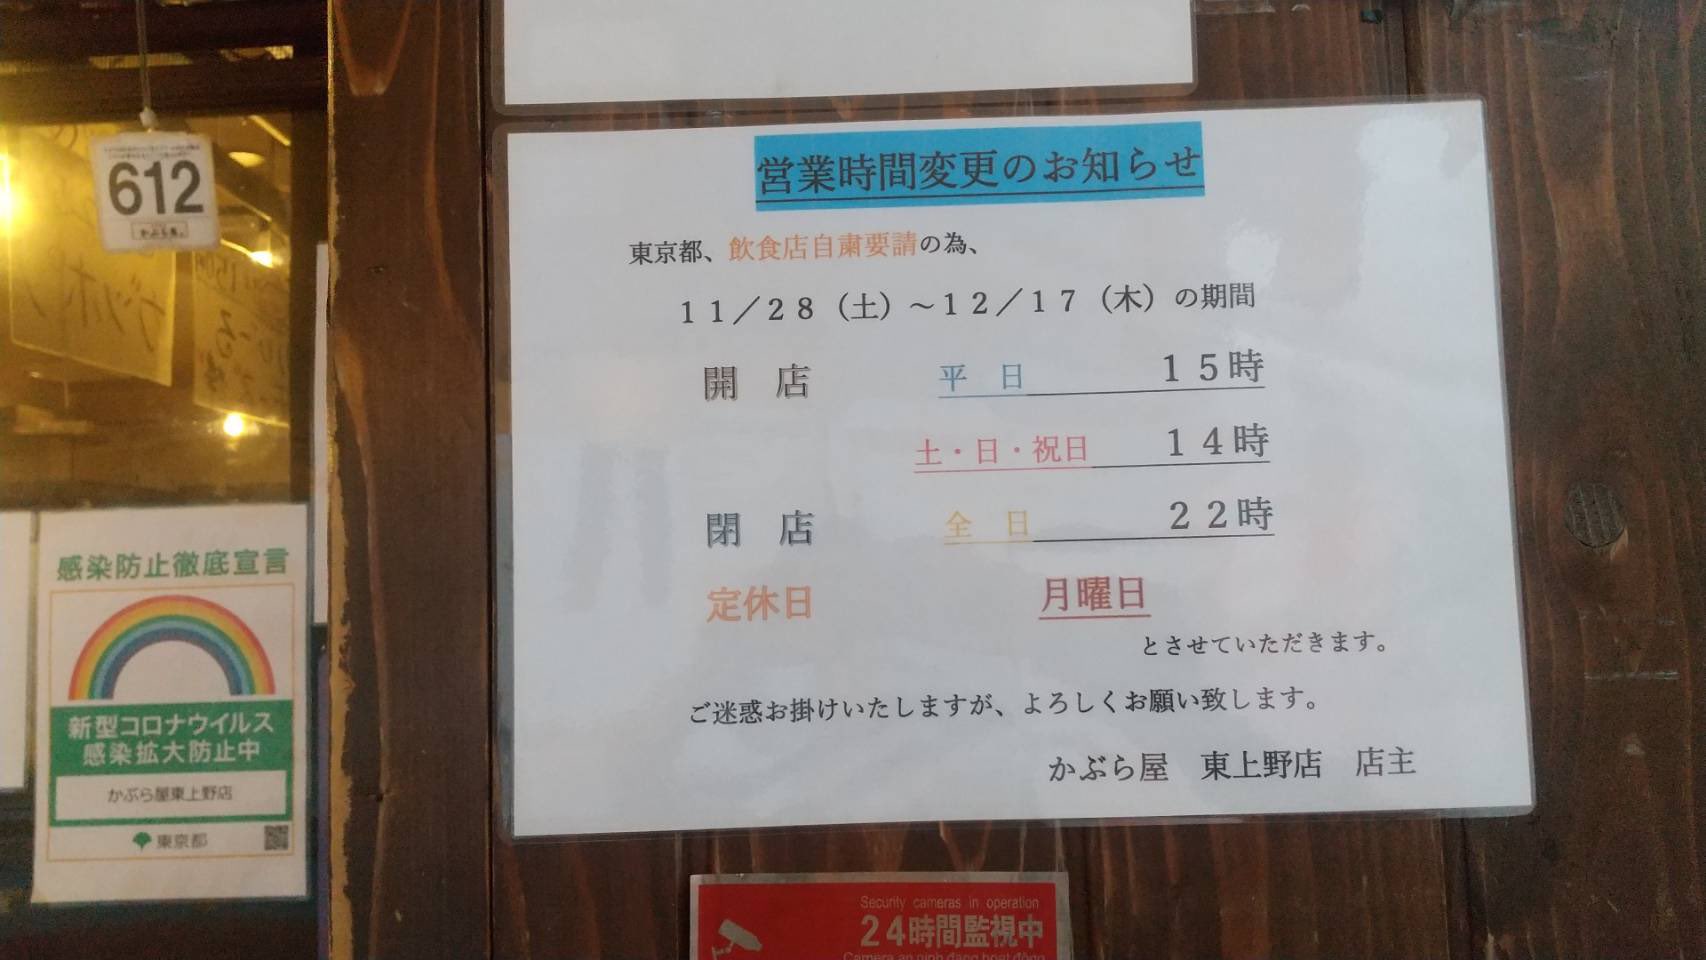 612
かぶら屋
営業時間変更のお知らせ
東京都、飲食店自粛要請の為、
11/28(土)~12/17(木)の期間
開 店 平 日 15時
土・日・祝日 14時
閉 店 全 日 22時
定休日 月曜日
とさせていただきます。
ご迷惑お掛けいたしますが、よろしくお願い致します。
かぶら屋 東上野店 店主
感染防止徹底宣言
新型コロナウイルス
感染拡大防止中
かぶら屋東上野店
東京都
Security cameras in operation
24時間監視中
Camera an ninh đang hoạt động